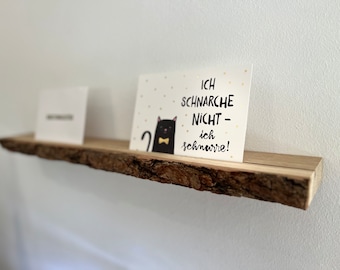 ICH
SCHNARCHE
NICHT -
ich
schnurre!